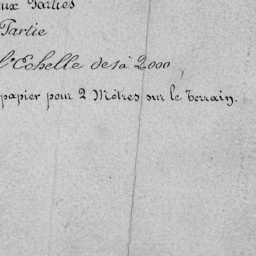 ux Parties
Partie
l'Echelle de 1 à 2000,
papier pour 2 Mètres sur le Terrain.